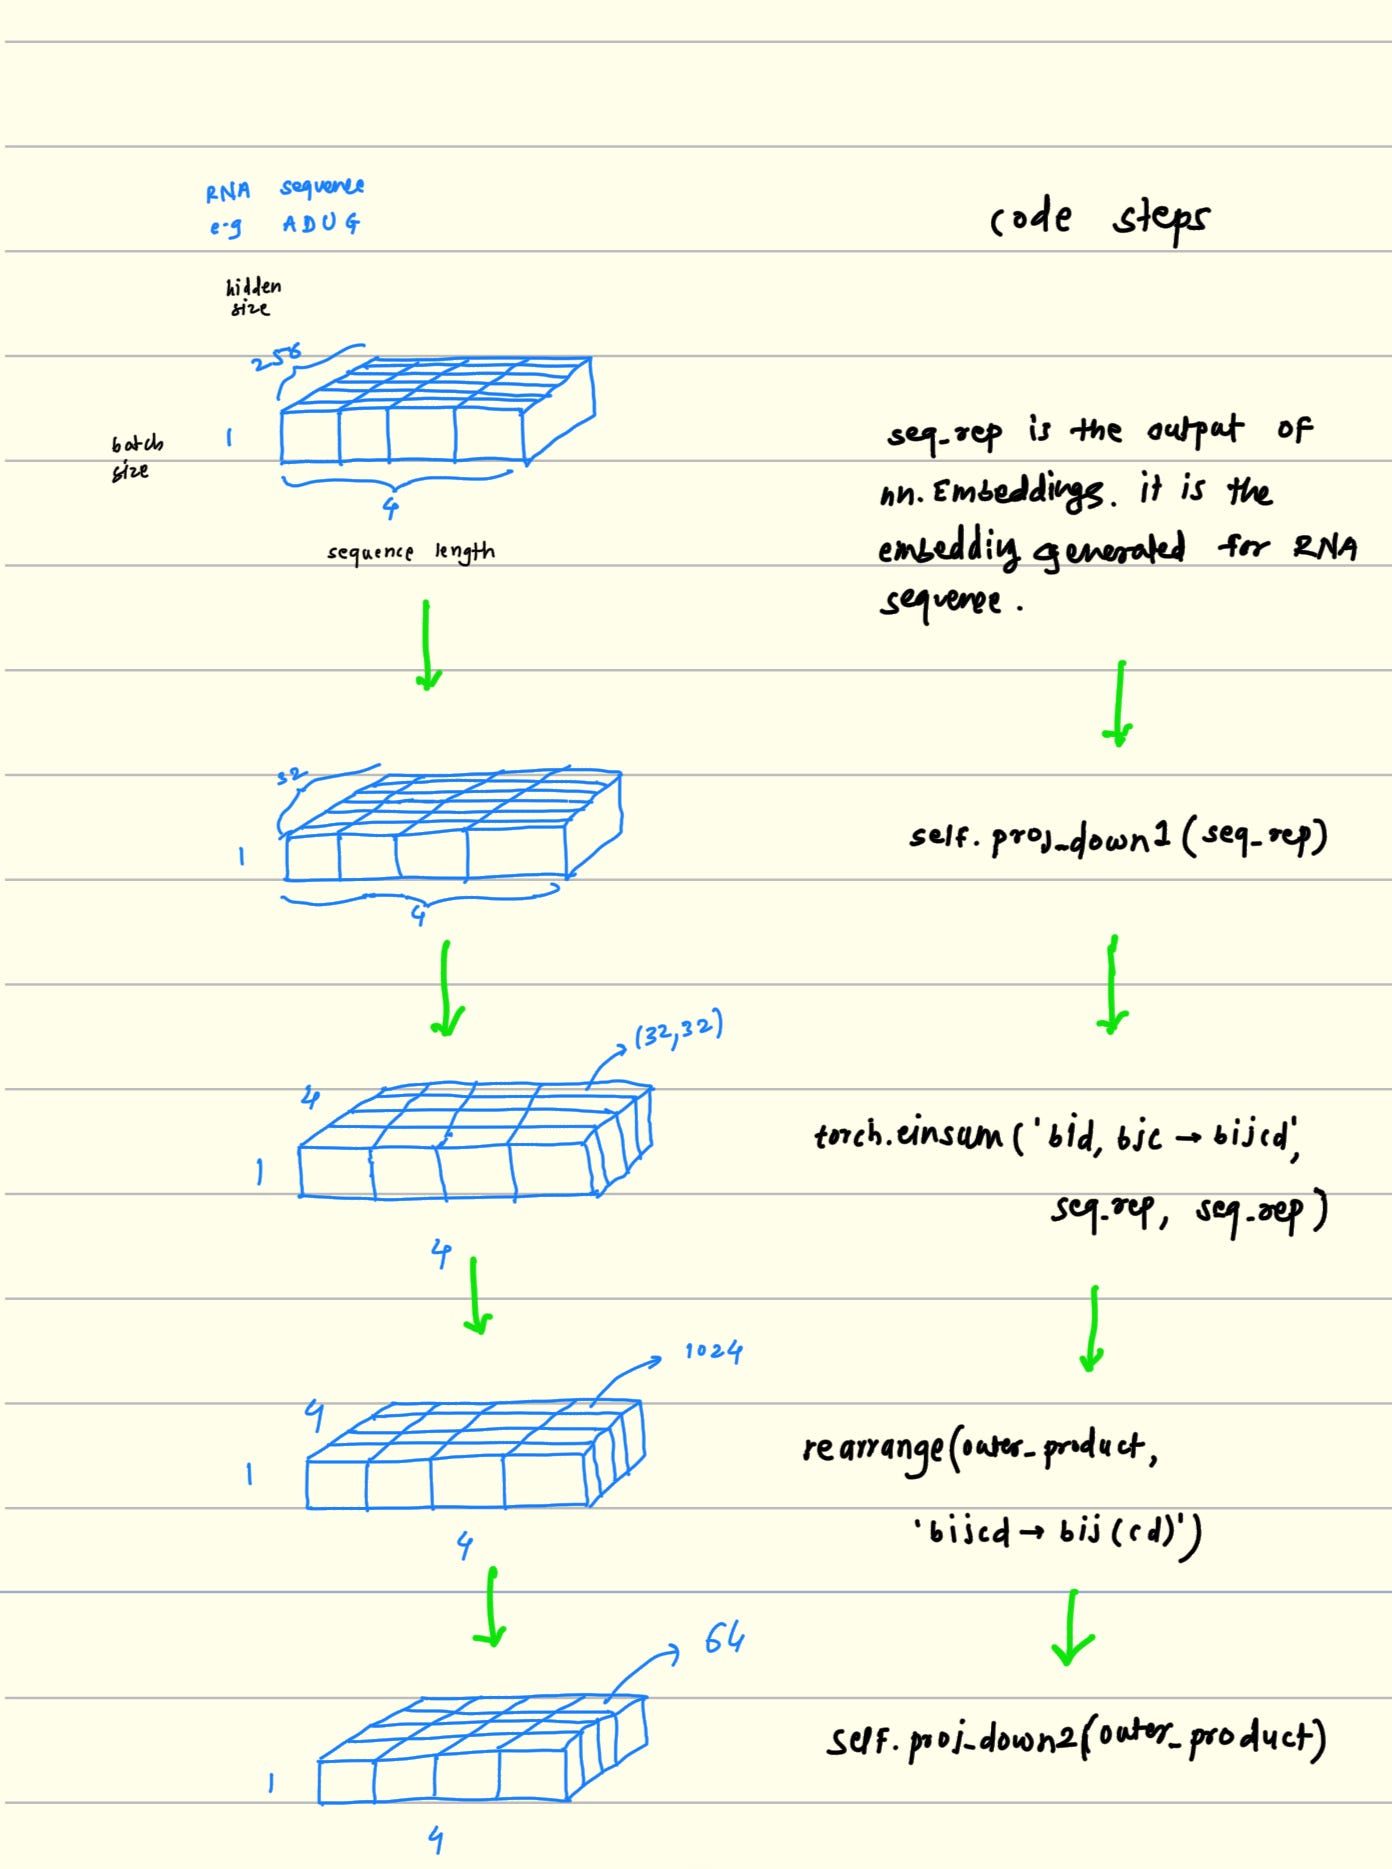 RNA sequence
e.g ADUG
code steps
hidden
size
256
1
batch
size
4
sequence length
seq_rep is the output of
nn.Embeddings. it is the
embeddig generated for RNA
sequence.
32
1
4
self.proj_down1(seq_rep)
(32,32)
4
1
4
torch.einsum('bid, bjc → bijcd',
seq_rep, seq_rep)
1024
4
1
4
rearrange(outer_product,
'bijcd → bij(cd)')
64
1
4
self.proj_down2(outer_product)